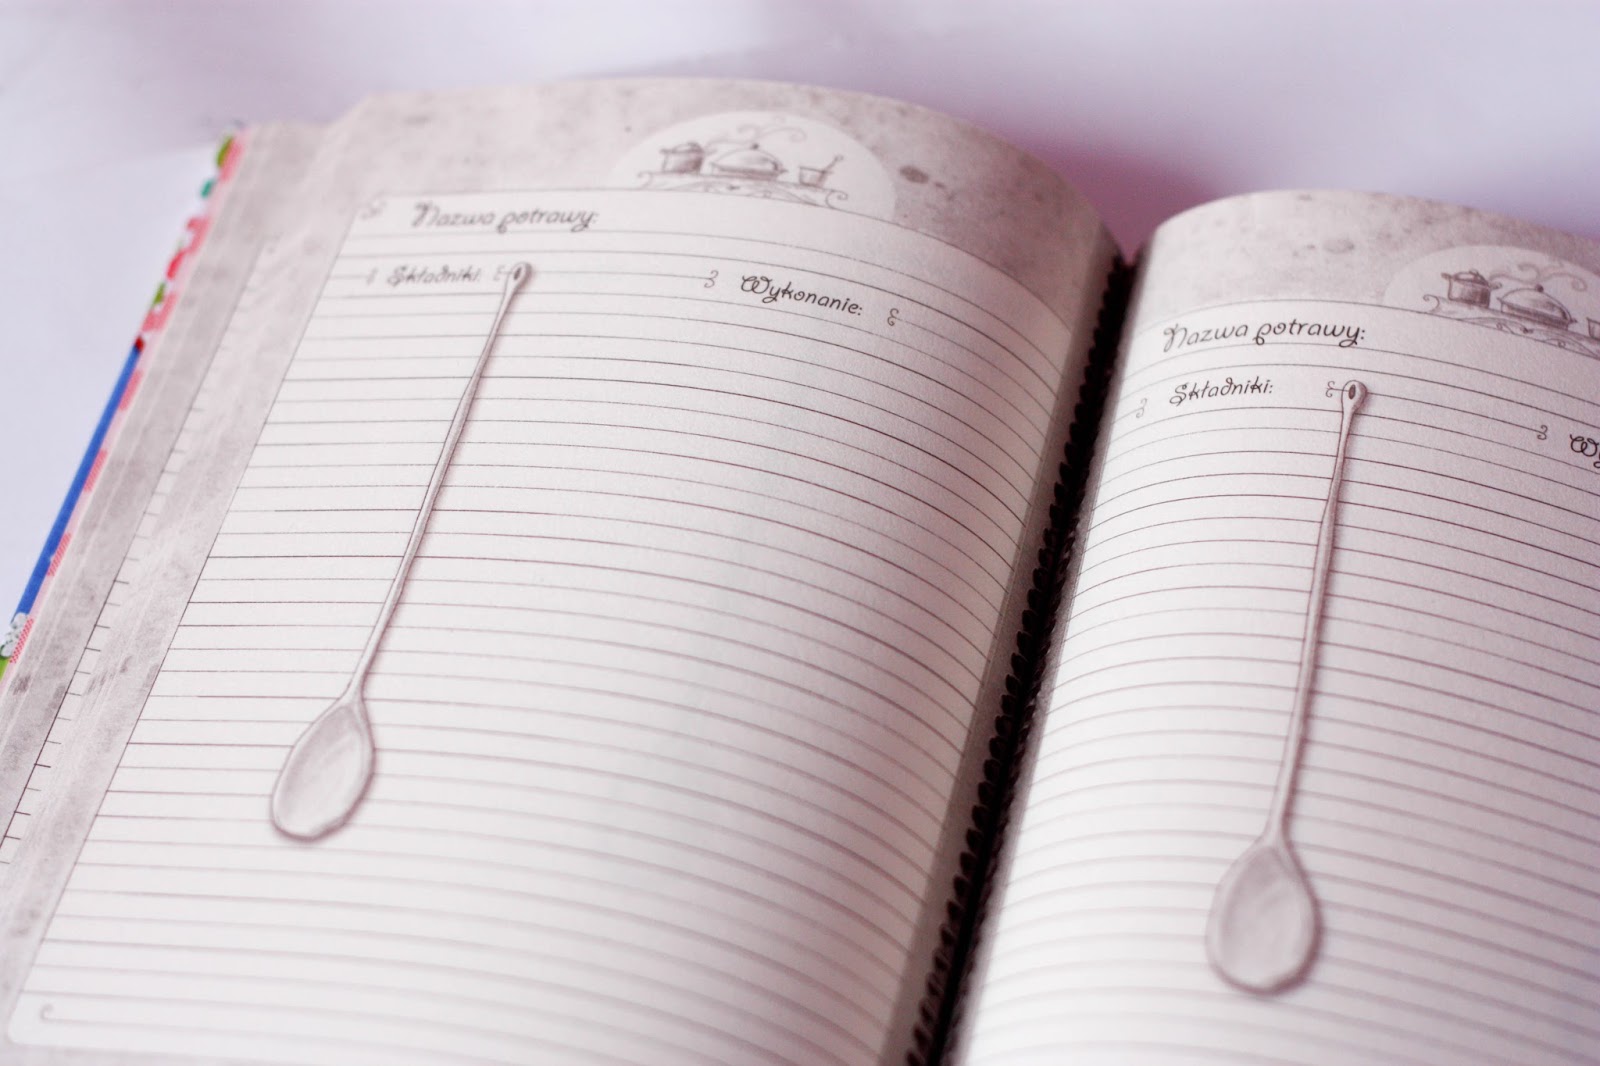 Nazwa potrawy:
Składniki:
Wykonanie:
Nazwa potrawy:
Składniki:
Wy